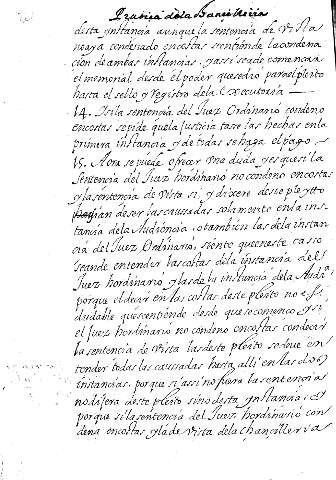 Practica de la Chancilleria
desta ynstancia aunque la sentencia de vista
no aya condenado en costas se entiende la condena
cion de ambas instancias, y assi se a de comencar
el memorial desde el poder que se dio para el pleito
hasta el sello y registro dela Executoria
14. I si la sentencia del Juez Ordinario condeno
en costas se pide que la Justicia tase las hechas en la
primera instancia y de todas se haga el pago
15. Aora se puede ofrecer una duda y es que si la
sentencia del Juez hordinario no condeno en costas
y la sentencia de vista si, y dixere deste pleytto
han de ser las causadas solamente en la ins
tancia dela Audiencia, o tambien las dela instan
cia del Juez Ordinario, siento que en este caso
se ande entender las costas dela instancia del
Juez hordinario y las de la instancia dela Audª
porque el decir en las costas deste pleito no es
dudable que se entiende desde que se comenco, y si
el Juez hordinario no condeno en costas condecir
la sentencia de Vista las deste pleito se deue en
tender todas las caussadas hasta alli en las dos
instancias. porque si assi no fuera la sentencia
no dijera deste pleito sino desta ynstancia;
porque si la sentencia del Juez hordinario con
dena en costas, y la de vista dela Chancilleria